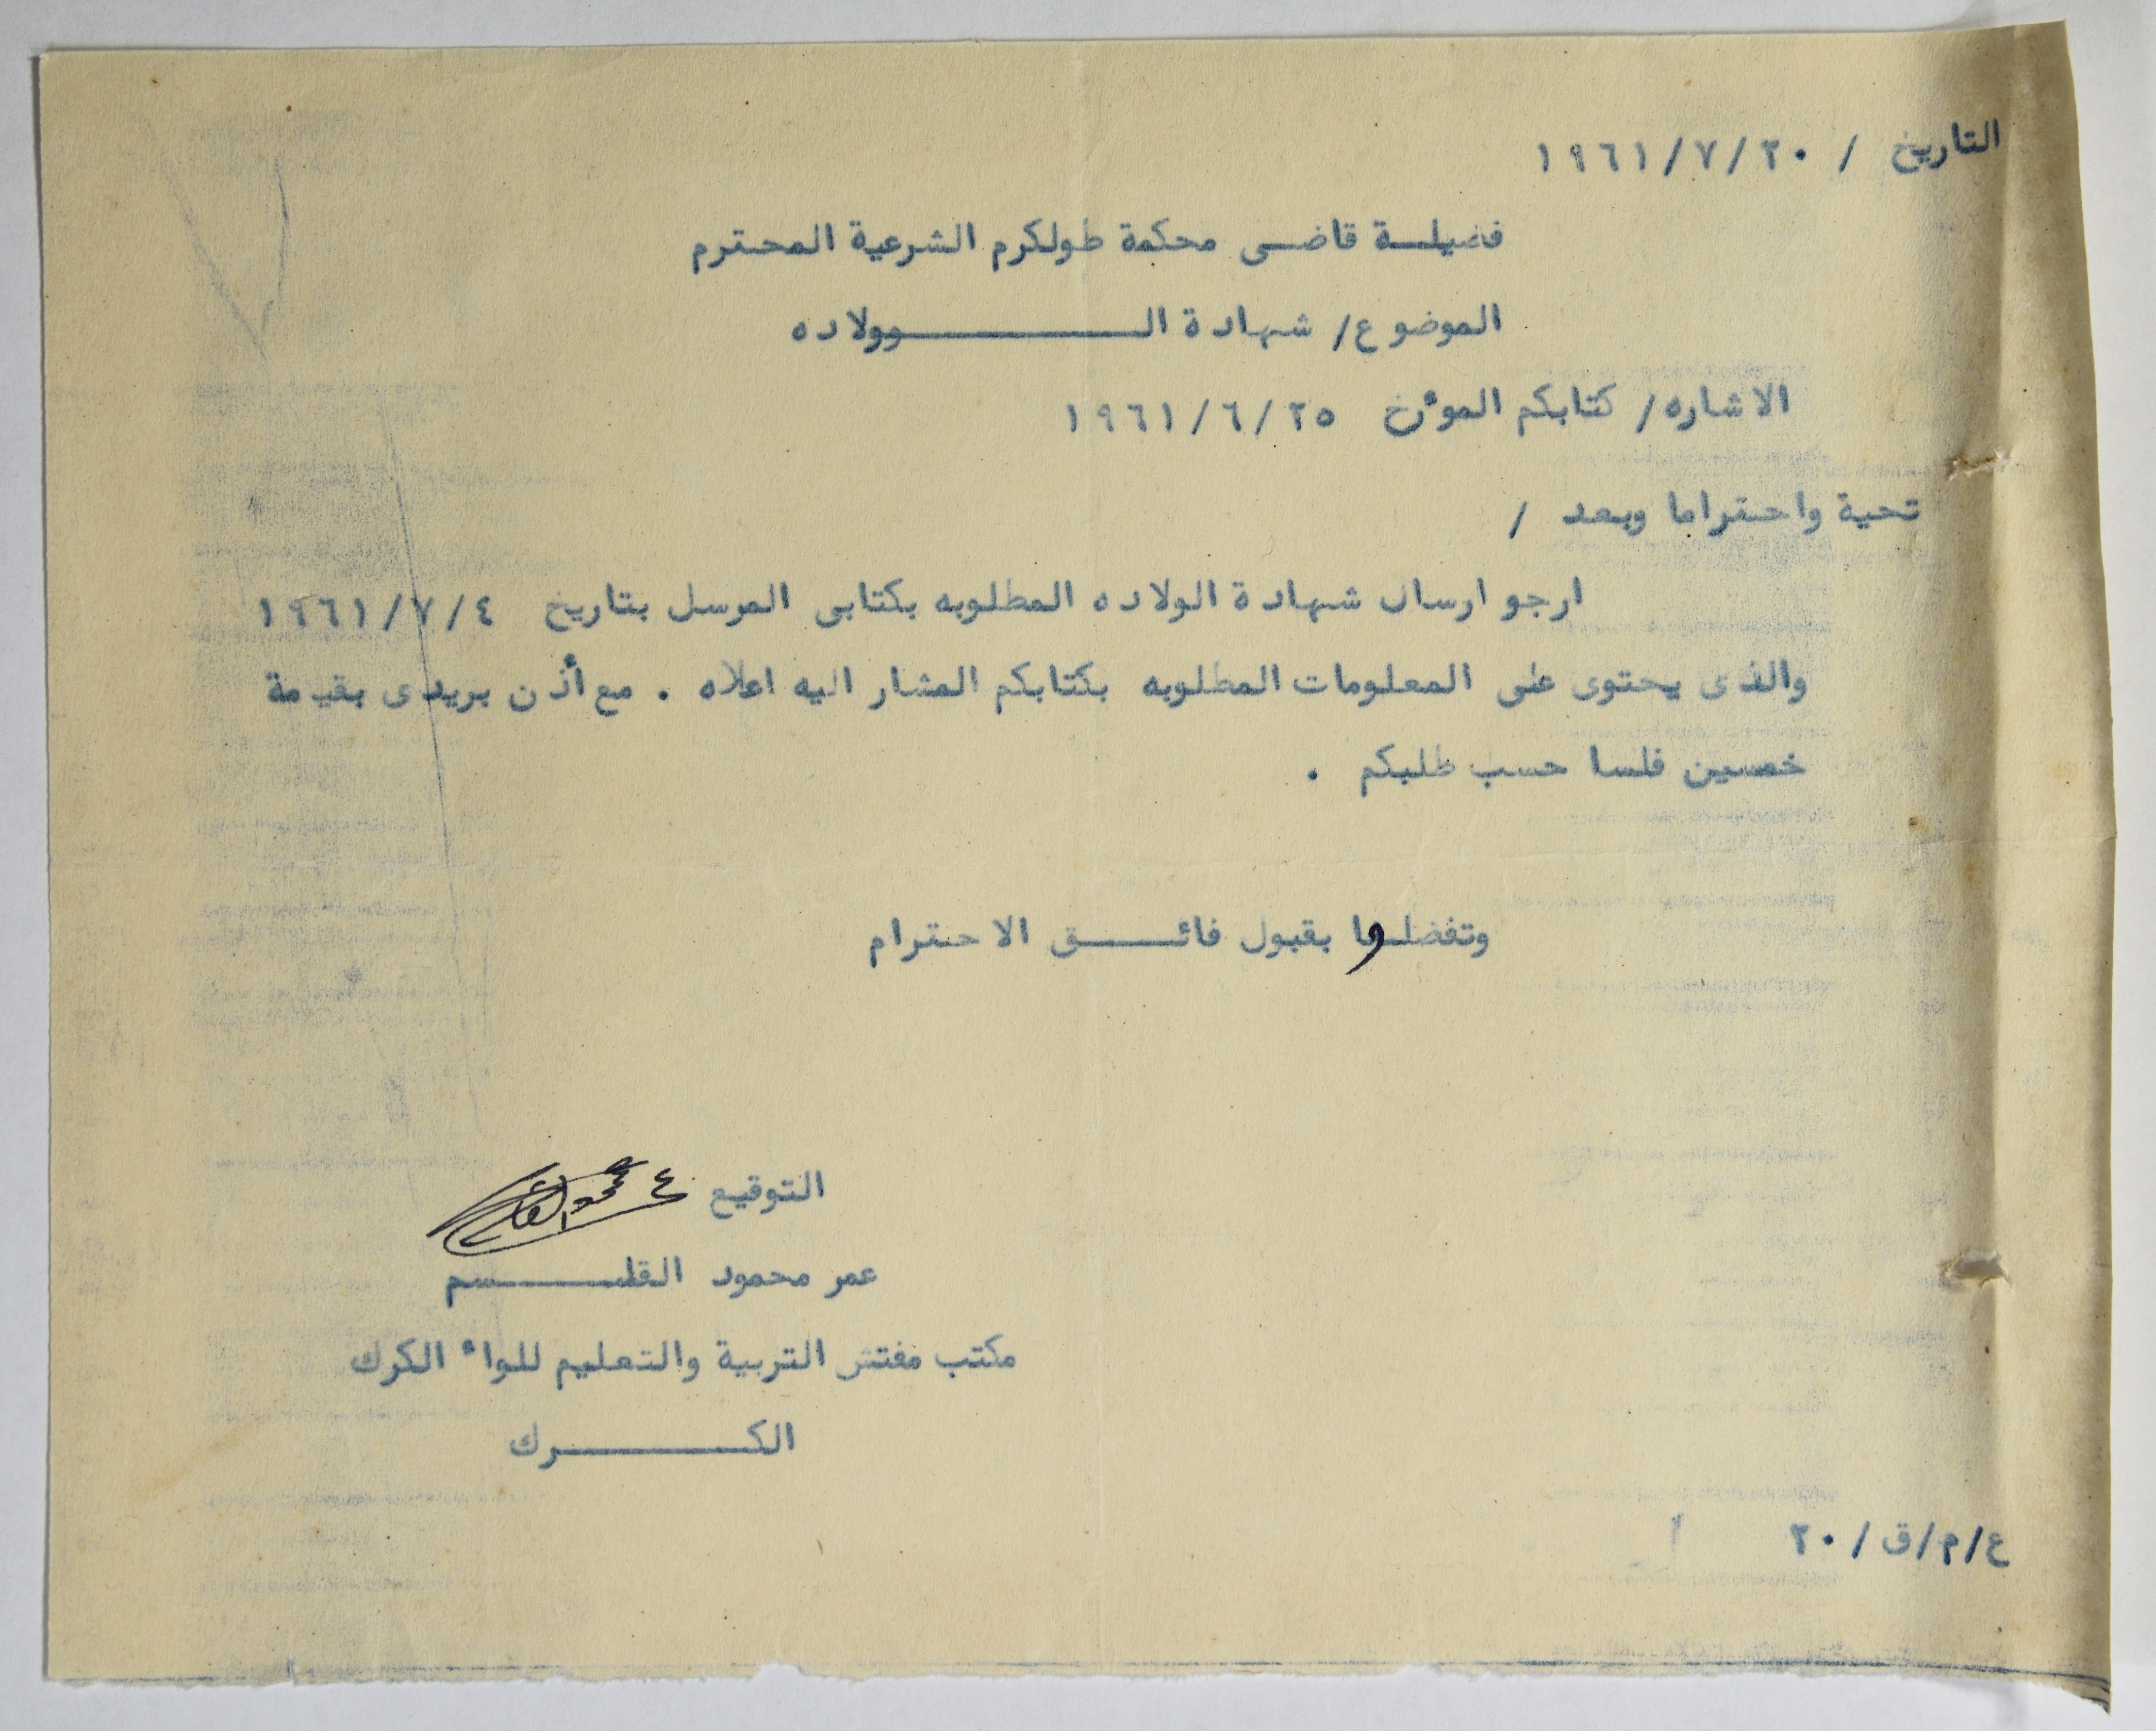 التاريخ / ٢٠/٧/١٩٦١
فضيلة قاضى محكمة طولكرم الشرعية المحترم
الموضوع/ شهادة الوولاده
الاشاره/ كتابكم الموٴرخ ٢٥/٦/١٩٦١
تحية واحتراما وبعد /
ارجو ارسال شهادة الولاده المطلوبه بكتابى المرسل بتاريخ ٤/٧/١٩٦١
والذى يحتوى على المعلومات المطلوبه بكتابكم المشار اليه اعلاه . مع أذن بريدى بقيمة
خمسين فلسا حسب طلبكم .
وتفضلوا بقبول فائق الاحترام
التوقيع
عمر محمود القلسم
مكتب مفتش التربية والتعليم للواء الكرك
الكرك
ع/م/ق/٢٠